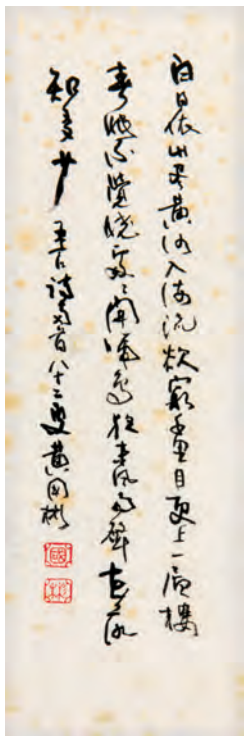 白日依山尽黄河入海流欲窮千里目更上一层楼
春眠不覺曉处处聞啼鸟夜来风雨聲花落
知多少 五言诗两首八十二叟黄国彬
國
彬